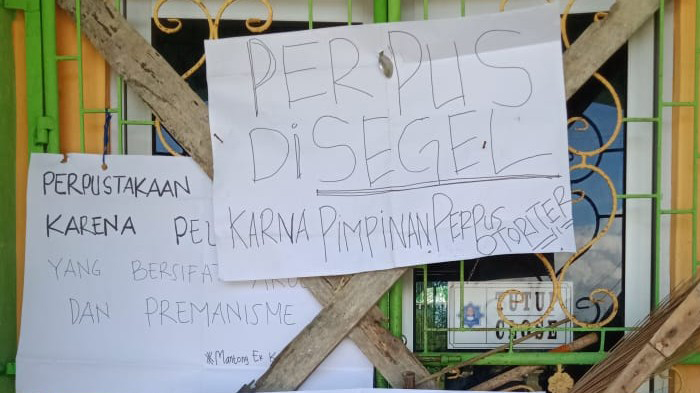 PERPUS
DiSEGEL
KARNA PIMPINAN PERPUS OTORITER
PERPUSTAKAAN
KARENA
YANG BERSIFAT
DAN PREMANISME
TUTUP
CLOSE